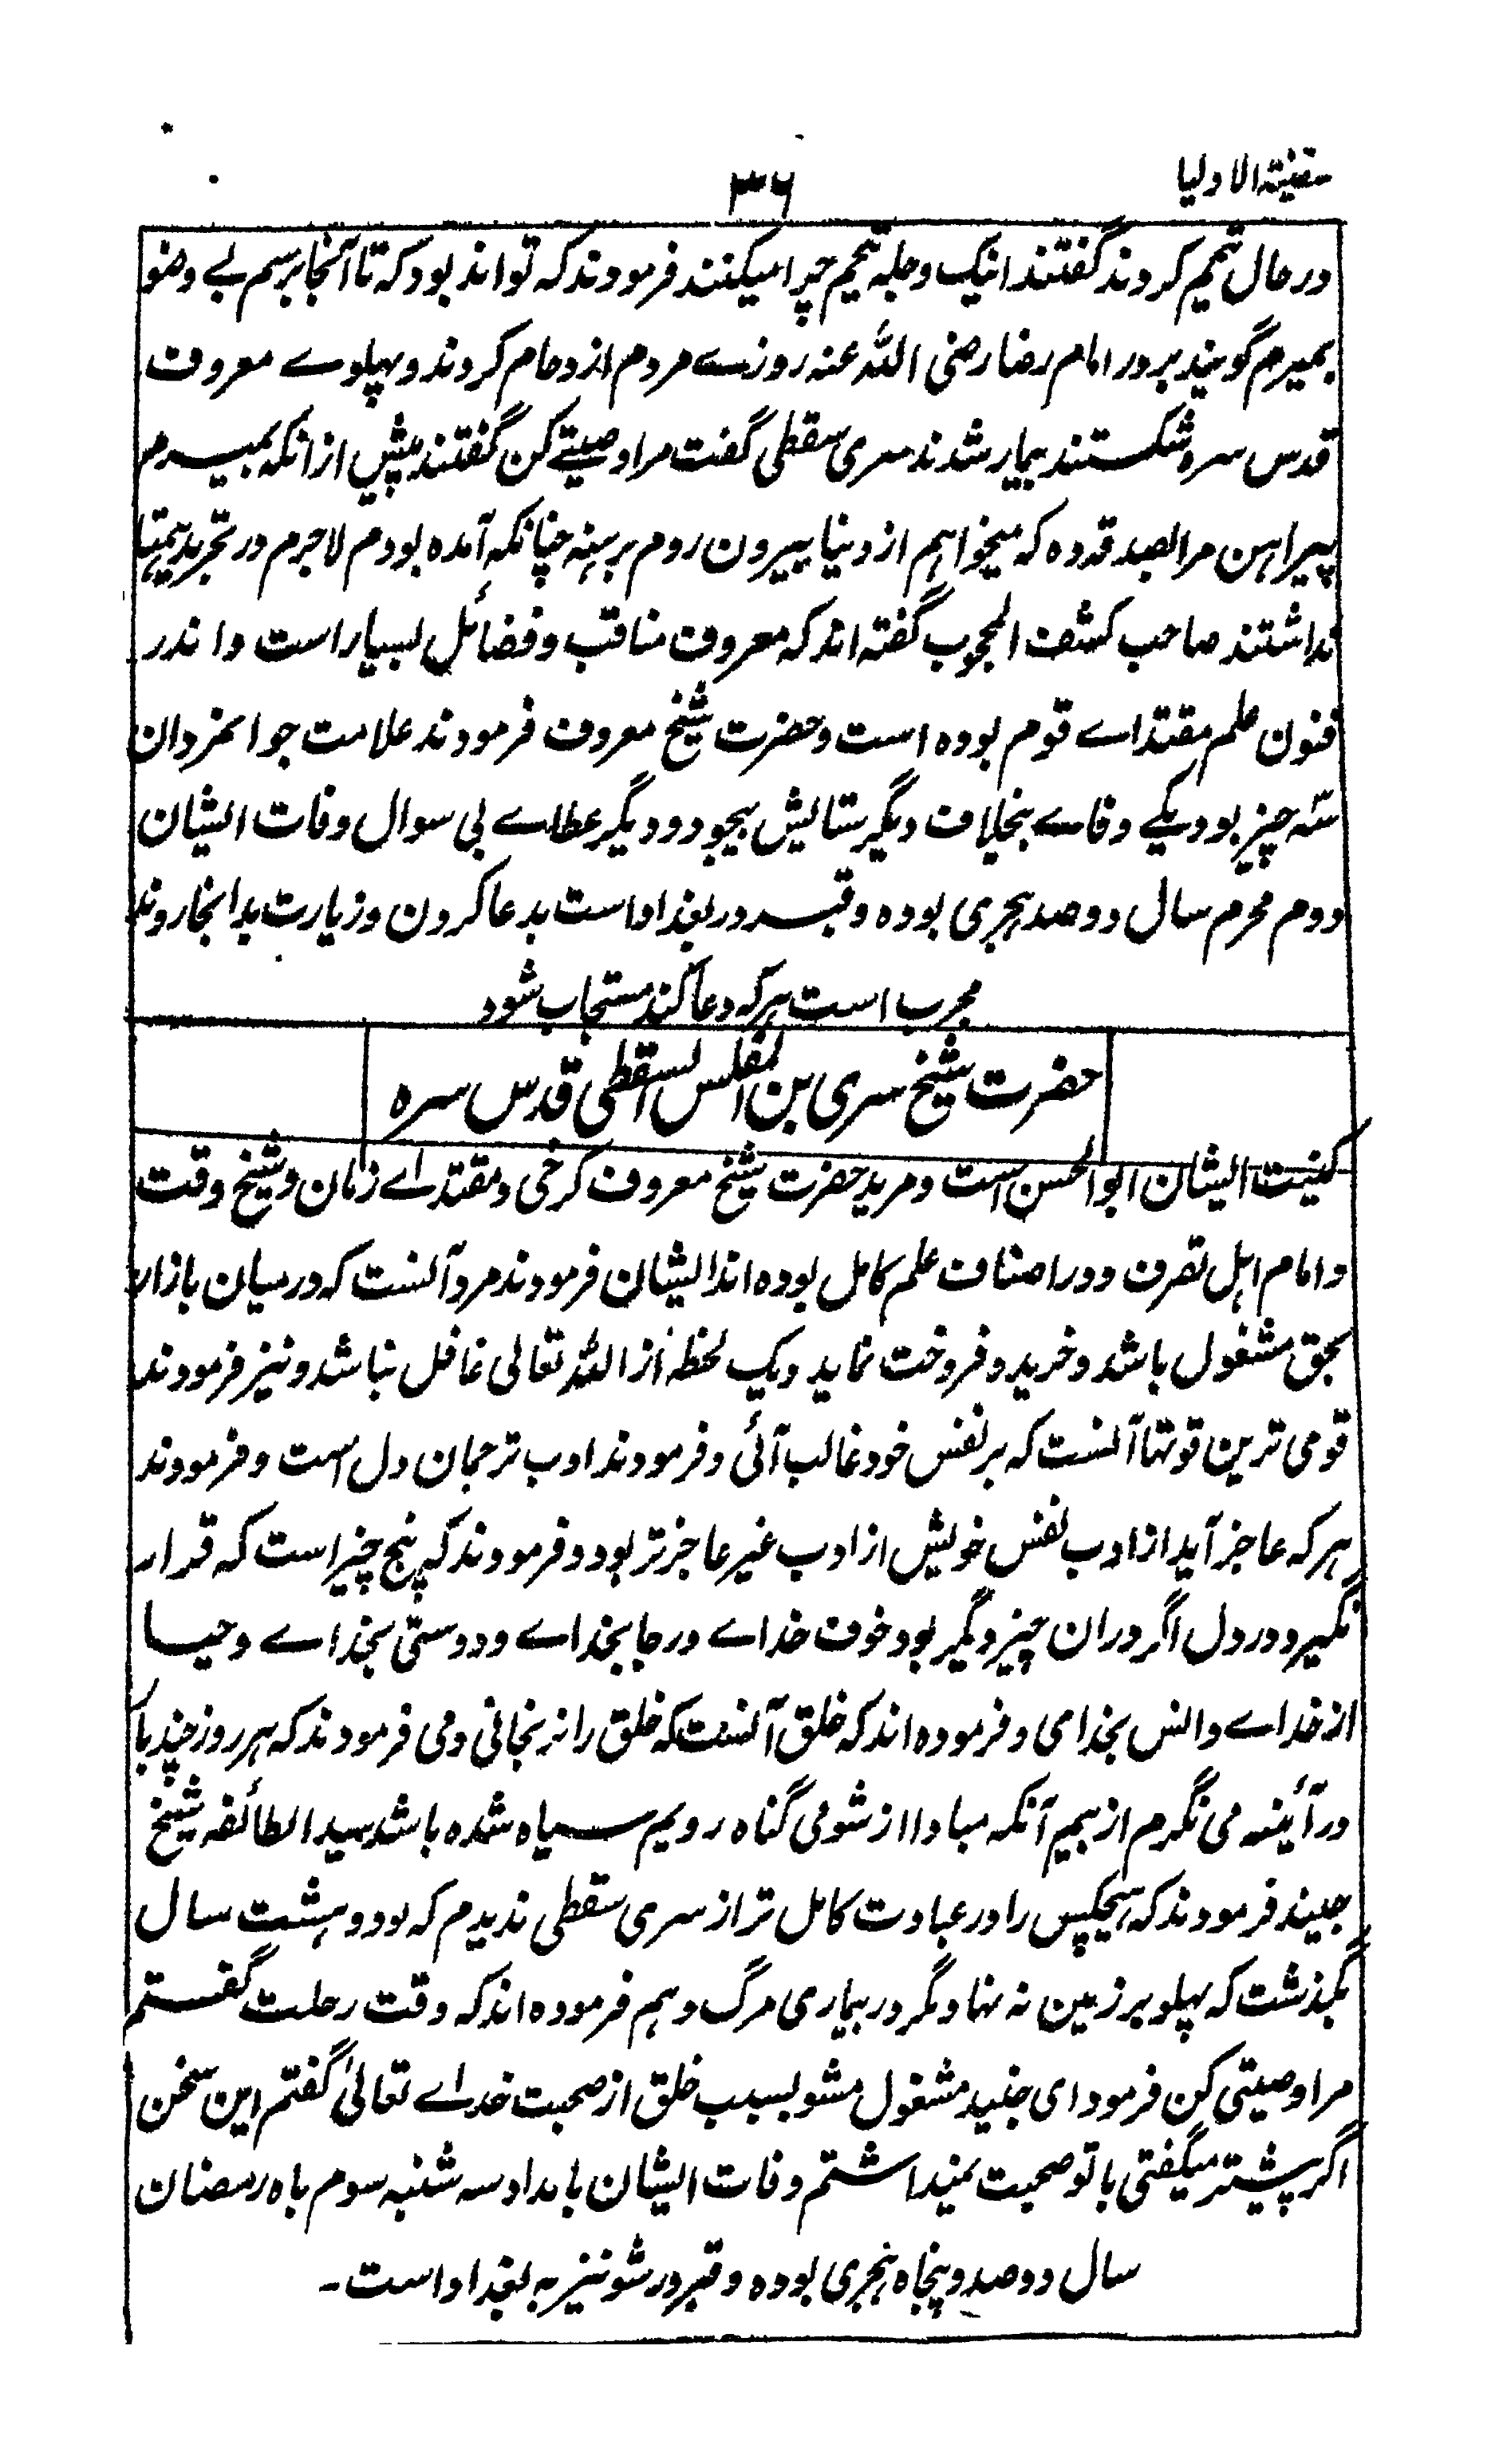 سفینة الاولیا
۳۶
در حال تیمم کردند گفتند اینک دجلہ تیمم چرا میکنند فرمودند کہ تواند بود کہ تا آنجا برسم بے وضو
بمیرم گویند بر در امام رضا رضی اللہ عنہ روزے مردم ازدحام کردند و پہلوے معروف
قدس سرہ شکستند بیمار شدند سری سقطی گفت مرا وصیتے کن گفتند پیش از انکہ بمیرم
پیراہن مرا بصدقہ دہ کہ میخواہم از دنیا بیرون روم برہنہ چنانکہ آمدہ بودم لاجرم در تجرید ہمتا
نداشتند صاحب کشف المحجوب گفتہ اند کہ معروف مناقب و فضائل بسیار است و اندر
فنون علم مقتداے قوم بودہ است و حضرت شیخ معروف فرمودند علامت جوانمردان
سہ چیز بود یکے وفاے بخلاف دیگر ستایش بیجود و دیگر عطاے بی سوال وفات ایشان
دوم محرم سال دوصد ہجری بودہ و قبر در بغداد است بدعا کردن و زیارت بدانجا روند
مجرب است ہر کہ دعا کند مستجاب شود
حضرت شیخ سری بن المفلس السقطی قدس سرہ
کنیت ایشان ابوالحسن است و مرید حضرت شیخ معروف کرخی و مقتداے زمان و شیخ وقت
و امام اہل تصرف و در اصناف علم کامل بودہ اند ایشان فرمودند مرد آنست کہ در میان بازار
بحق مشغول باشد و خرید و فروخت نماید و یک لحظہ از اللہ تعالی غافل نباشد و نیز فرمودند
قوی ترین قوتہا آنست کہ بر نفس خود غالب آئی و فرمودند ادب ترجمان دل است و فرمودند
ہر کہ عاجز آید از ادب نفس خویش از ادب غیر عاجز تر بود و فرمودند کہ پنج چیز است کہ قرار
نگیرد در دل اگر دران چیز دیگر بود خوف خداے و رجا بخداے و دوستی بخداے و حیا
از خداے و انس بخدای و فرمودہ اند کہ خلق آنست کہ خلق را نرنجانی و می فرمودند کہ ہر روز چند بار
در آئینہ می نگرم از بیم آنکہ مبادا از شومی گناہ رویم سیاہ شدہ باشد سید الطائفہ شیخ
جنید فرمودند کہ ہیچکس را در عبادت کامل تر از سری سقطی ندیدم کہ نود و ہشت سال
بگذشت کہ پہلو بر زمین نہ نہاد مگر در بیماری مرگ و ہم فرمودہ اند کہ وقت رحلت گفتم
مرا وصیتی کن فرمود ای جنید مشغول مشو بسبب خلق از صحبت خداے تعالیٰ گفتم این سخن
اگر پیشتر میگفتی با تو صحبت نمیداشتم وفات ایشان بامداد سہ شنبہ سوم ماہ رمضان
سال دوصد و پنجاہ ہجری بودہ و قبر در شونیزیہ بغداد است۔